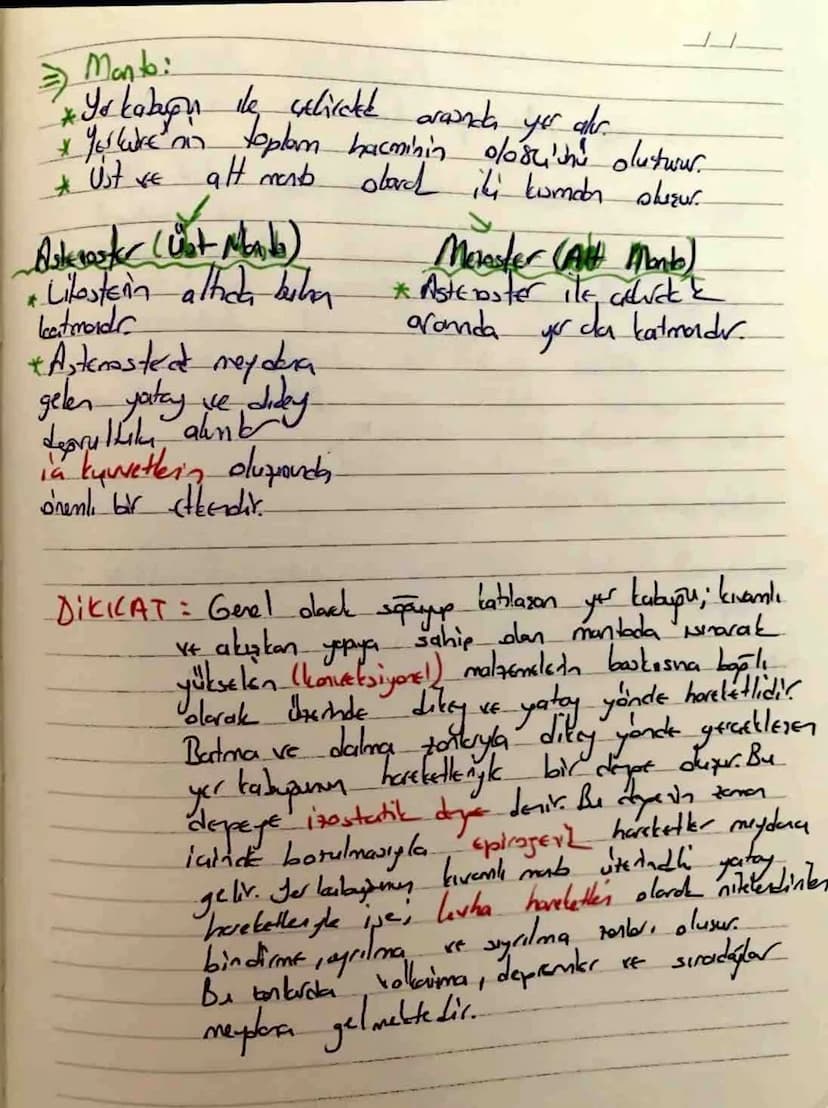 ⇒ Manto:
* Yer kabuğu ile çekirdek arasında yer alır.
* Yerküre'nin toplam hacminin %80'ini oluşturur.
* Üst ve alt manto olarak iki kısımdan oluşur.
Astenosfer (Üst Manto)
* Litosferin altında bulunan
katmandır.
* Astenosferde meydana
gelen yatay ve dikey
doğrultulu akıntılar
iç kuvvetlerin oluşumunda
önemli bir etkendir.
Mezosfer (Alt Manto)
* Astenosfer ile çekirdek
arasında yer alan katmandır.
DİKKAT: Genel olarak soğuyup katılaşan yer kabuğu; kıvamlı
ve akışkan yapıya sahip olan mantoda ısınarak
yükselen (konveksiyonel) malzemelerin baskısına bağlı
olarak üzerinde dikey ve yatay yönde hareketlidir.
Batma ve dalma zonlarıyla dikey yönde gerçekleşen
yer kabuğunun hareketleriyle bir denge oluşur. Bu
dengeye izostatik denge denir. Bu dengenin zaman
içinde bozulmasıyla epirojenik hareketler meydana
gelir. Yer kabuğunun kıvamlı manto üzerindeki yatay
hareketleriyle ise; levha hareketleri olarak nitelendirilen
bindirme, ayrılma ve sıyrılma zonları oluşur.
Bu zonlarda volkanizma, depremler ve sıradağlar
meydana gelmektedir.